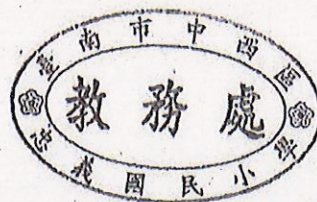 臺南市中西區
教務處
忠義國民小學